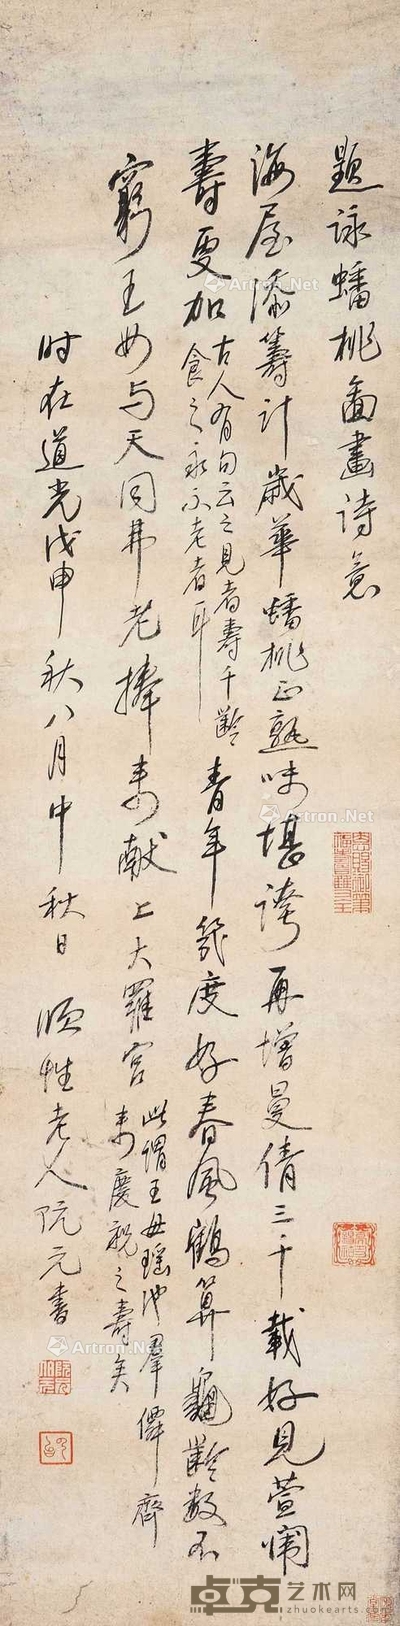 题咏蟠桃面畫诗意
海屋添筹计歲華蟠桃正熟味堪誇再增曼倩三千載好見萱闱
壽更加
古人有句云之見者壽千齡
食之永不老者耳
青年幾度好春風鶴算龜齡数不
窮王母与天同弗老捧来獻上大羅宫
此謂王母瑶池羣僊齊
来慶祝之壽矣
时在道光戊申秋八月中秋日 頤性老人阮元書
Artron.Net
卓克艺术网
zhuokearts.com